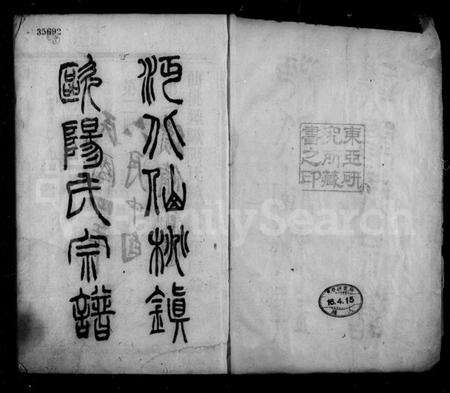 35692
沔北仙桃鎮
歐陽氏宗譜
東亞研
究所藏
書之印
16.4.15
FamilySearch